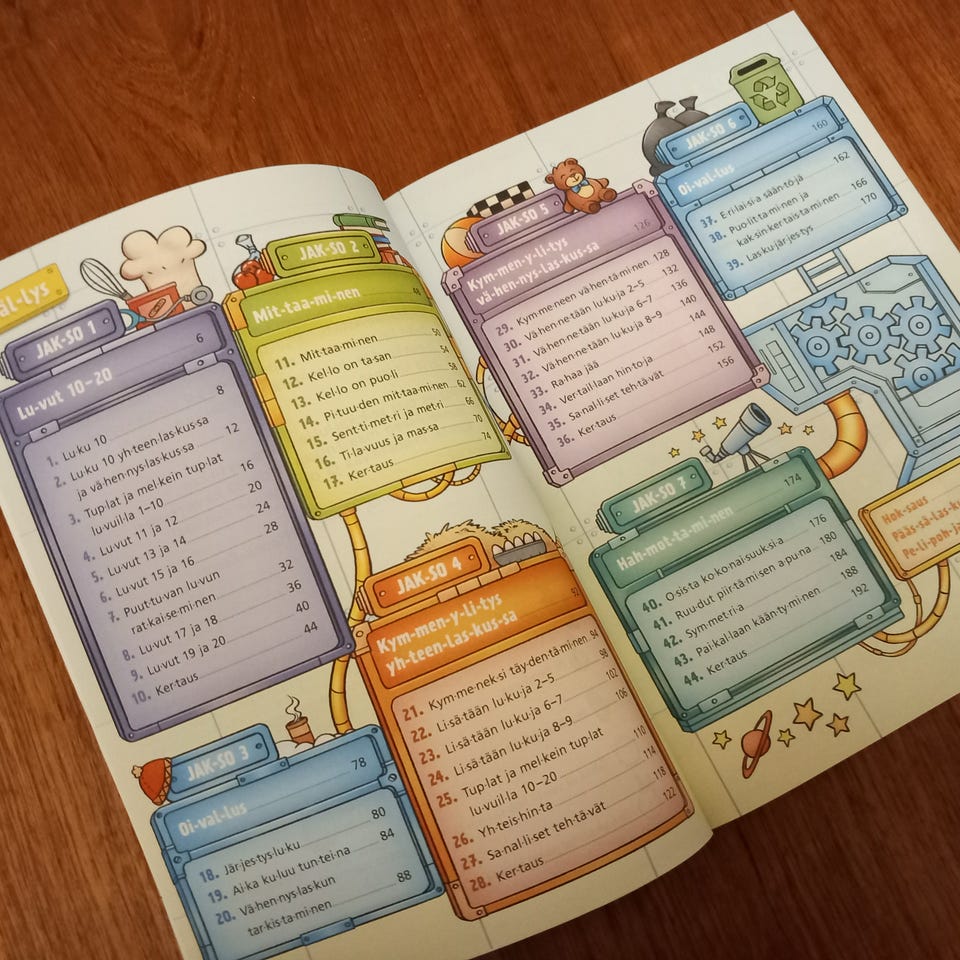 äl-lys
JAK-SO 1
Lu-vut 10–20 6
1. Lu·ku 10 8
2. Luku 10 yh·teen·las·kus·sa
ja vä·hen·nys·las·kus·sa 12
3. Tup·lat ja mel·kein tup·lat
lu·vuil·la 1–10 16
4. Lu·vut 11 ja 12 20
5. Lu·vut 13 ja 14 24
6. Lu·vut 15 ja 16 28
7. Puut·tu·van lu·vun
rat·kai·se·mi·nen 32
8. Lu·vut 17 ja 18 36
9. Lu·vut 19 ja 20 40
10. Ker·taus 44
JAK-SO 2
Mit-taa-mi-nen 48
11. Mit·taa·mi·nen 50
12. Kel·lo on ta·san 54
13. Kel·lo on puo·li 58
14. Pi·tuu·den mit·taa·mi·nen 62
15. Sent·ti·met·ri ja met·ri 66
16. Ti·la·vuus ja mas·sa 70
17. Ker·taus 74
JAK-SO 3
Oi-val-lus 78
18. Jär·jes·tys·lu·ku 80
19. Ai·ka ku·luu tun·tei·na 84
20. Vä·hen·nys·las·kun
tar·kis·ta·mi·nen 88
JAK-SO 4
Kym-men-y-li-tys
yh-teen-las-kus-sa 92
21. Kym·me·nek·si täy·den·tä·mi·nen 94
22. Li·sä·tään lu·ku·ja 2–5 98
23. Li·sä·tään lu·ku·ja 6–7 102
24. Li·sä·tään lu·ku·ja 8–9 106
25. Tup·lat ja mel·kein tup·lat
lu·vuil·la 10–20 110
26. Yh·teis·hin·ta 114
27. Sa·nal·li·set teh·tä·vät 118
28. Ker·taus 122
JAK-SO 5
Kym-men-y-li-tys
vä-hen-nys-las-kus-sa 126
29. Kym·me·neen vä·hen·tä·mi·nen 128
30. Vä·hen·ne·tään lu·ku·ja 2–5 132
31. Vä·hen·ne·tään lu·ku·ja 6–7 136
32. Vä·hen·ne·tään lu·ku·ja 8–9 140
33. Ra·haa jää 144
34. Ver·tail·laan hin·to·ja 148
35. Sa·nal·li·set teh·tä·vät 152
36. Ker·taus 156
JAK-SO 6
Oi-val-lus 160
37. E·ri·lai·si·a sään·tö·jä 162
38. Puo·lit·ta·mi·nen ja
kak·sin·ker·tais·ta·mi·nen 166
39. Las·ku·jär·jes·tys 170
JAK-SO 7
Hah-mot-ta-mi-nen 174
40. O·sis·ta ko·ko·nai·suuk·si·a 176
41. Ruu·dut piir·tä·mi·sen a·pu·na 180
42. Sym·met·ri·a 184
43. Pai·kal·laan kään·ty·mi·nen 188
44. Ker·taus 192
Hok-saus
Pääs-sä-las-k
Pe-li-poh-j